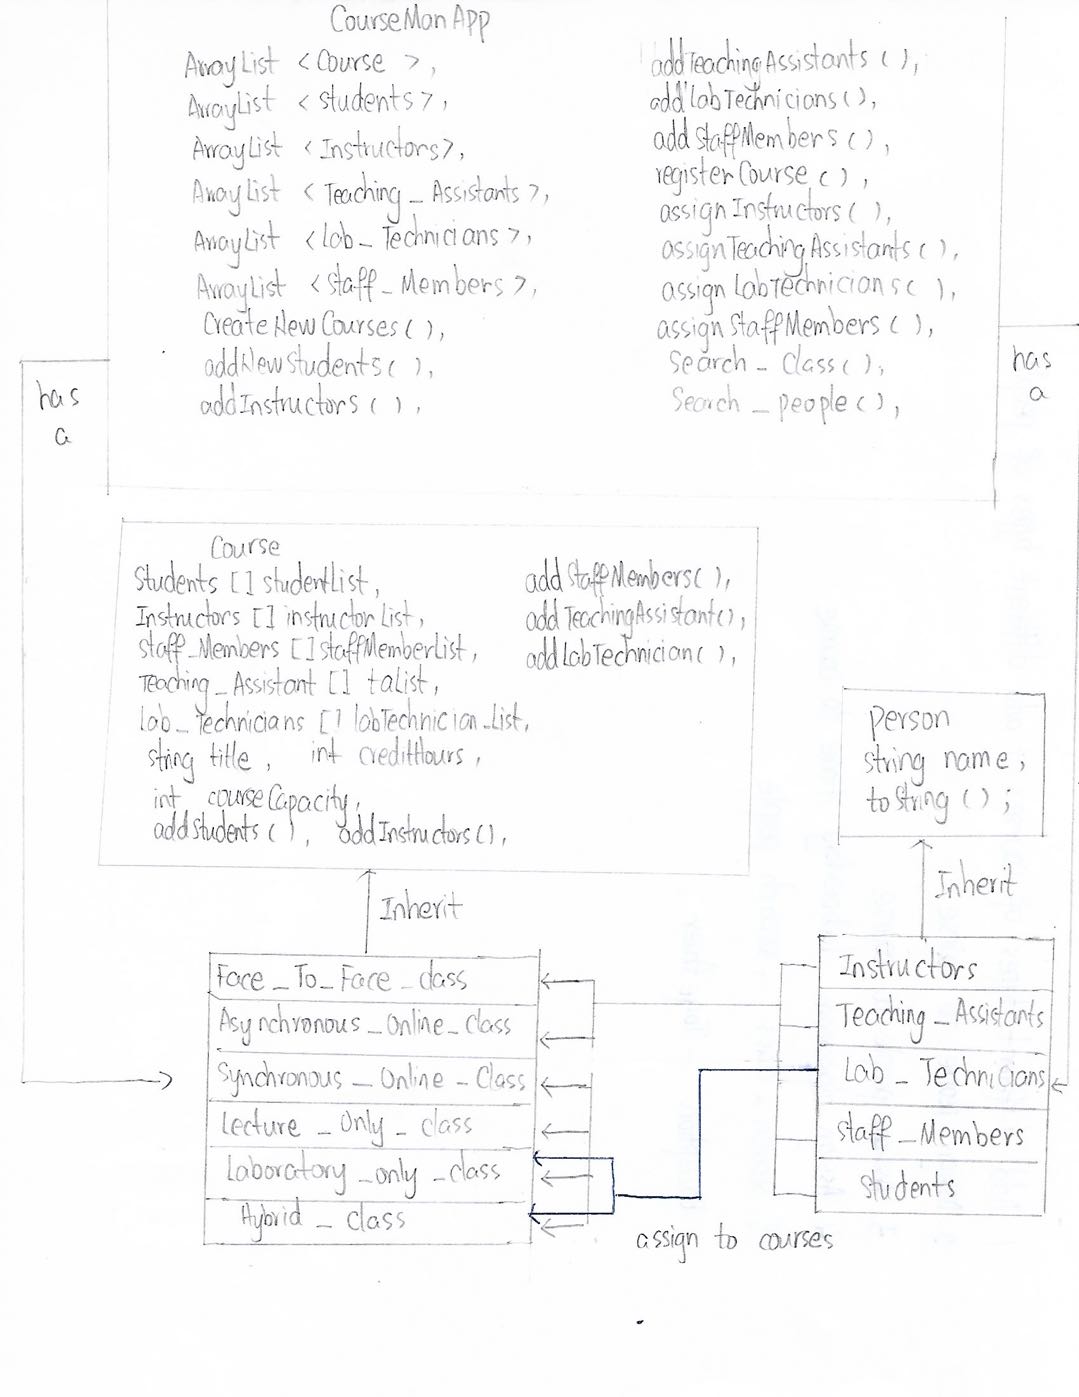 CourseManApp
ArrayList < Course >,
ArrayList < students>,
ArrayList < Instructors>,
ArrayList < Teaching_Assistants >,
ArrayList < Lab_Technicians >,
ArrayList < staff_Members >,
CreateNewCourses ( ),
addNewStudents ( ),
addInstructors ( ),
addTeachingAssistants ( ),
addLabTechnicians ( ),
addStaffMembers ( ),
registerCourse ( ),
assignInstructors ( ),
assignTeachingAssistants ( ),
assignLabTechnicians ( ),
assignStaffMembers ( ),
Search_Class ( ),
Search_people ( ),
has
a
has
a
Course
Students [ ] studentList,
Instructors [ ] instructorList,
staff_Members [ ] staffMemberList,
Teaching_Assistant [ ] taList,
lab_Technicians [ ] labTechnician_List,
string title , int creditHours ,
int courseCapacity,
addStudents ( ), addInstructors ( ),
addStaffMembers ( ),
addTeachingAssistant ( ),
addLabTechnician ( ),
person
string name ,
toString ( ) ;
Inherit
Inherit
Face_To_Face_class
Asynchronous_Online_Class
Synchronous_Online_Class
Lecture_Only_class
Laboratory_only_class
Hybrid_class
Instructors
Teaching_Assistants
Lab_Technicians
Staff_Members
Students
assign to courses